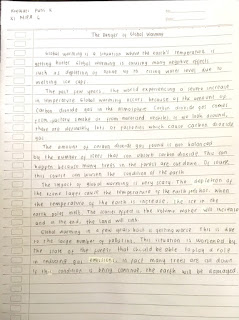 The Danger of Global Warming
Global warming is a situation where the earth's temperature is
getting hotter. Global warming is causing many negative effects
such as depleting of ozone to rising water level due to
melting ice caps.
The past few years, the world experiencing a severe increase
in temperature. Global warming occurs because of the amount of
carbon dioxide gas in the atmosphere. Carbon dioxide gas comes
from factory smoke or from motorized vehicles. As we look around,
there are definitely lots of factories which cause carbon dioxide
gas.
The amount of carbon dioxide gas found is not balanced
by the number of trees that can absorb carbon dioxide. This can
happen because many trees in the forest are cut down. Of course
this issue can worsen the condition of the earth.
The impact of global warming is very scary. The depletion of
the ozone layer causes the temperature of the earth hotter. When
the temperature of the earth is increase, the ice in the
earth poles melt. This causes the volume water will increase
and in the end, the land will sink.
Global warming in a few years back is getting worse. This is due
to the large number of polluting. This situation is worsened by
the state of the forest that should be able to play a role
in reducing gas emission. In fact many trees are cut down.
If this condition is being continue, the earth will be damaged